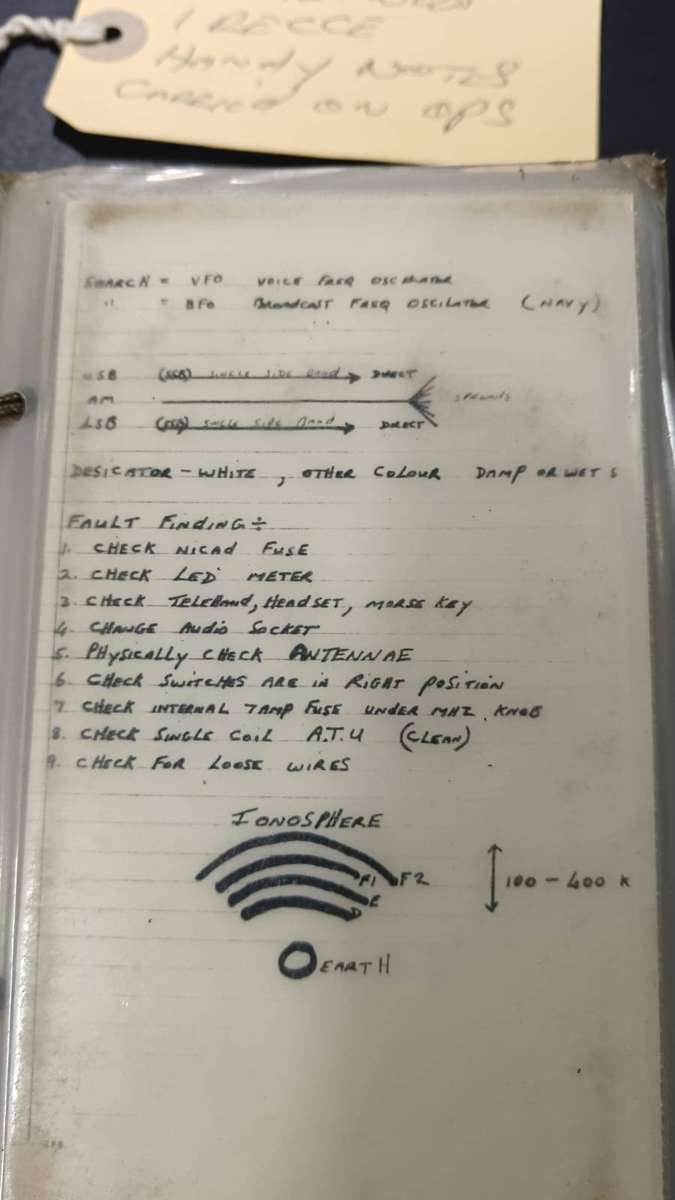 1 RECCE
HANDY NOTES
CARRIED ON OPS
SEARCH = VFO VOICE FREQ OSCILATOR
" = BFO BROADCAST FREQ OSCILATOR (NAVY)
USB (SSB) SINGLE SIDE BAND DIRECT
AM SPREADS
LSB (SSB) SINGLE SIDE BAND DIRECT
DESICATOR - WHITE, OTHER COLOUR DAMP OR WET
FAULT FINDING ÷
1. CHECK NICAD FUSE
2. CHECK LED METER
3. CHECK TELEHAND, HEADSET, MORSE KEY
4. CHANGE AUDIO SOCKET
5. PHYSICALLY CHECK ANTENNAE
6. CHECK SWITCHES ARE IN RIGHT POSITION
7. CHECK INTERNAL 7AMP FUSE UNDER MHZ KNOB
8. CHECK SINGLE COIL A.T.U (CLEAN)
9. CHECK FOR LOOSE WIRES
IONOSPHERE
F1 F2
E
D
100 - 400 K
EARTH